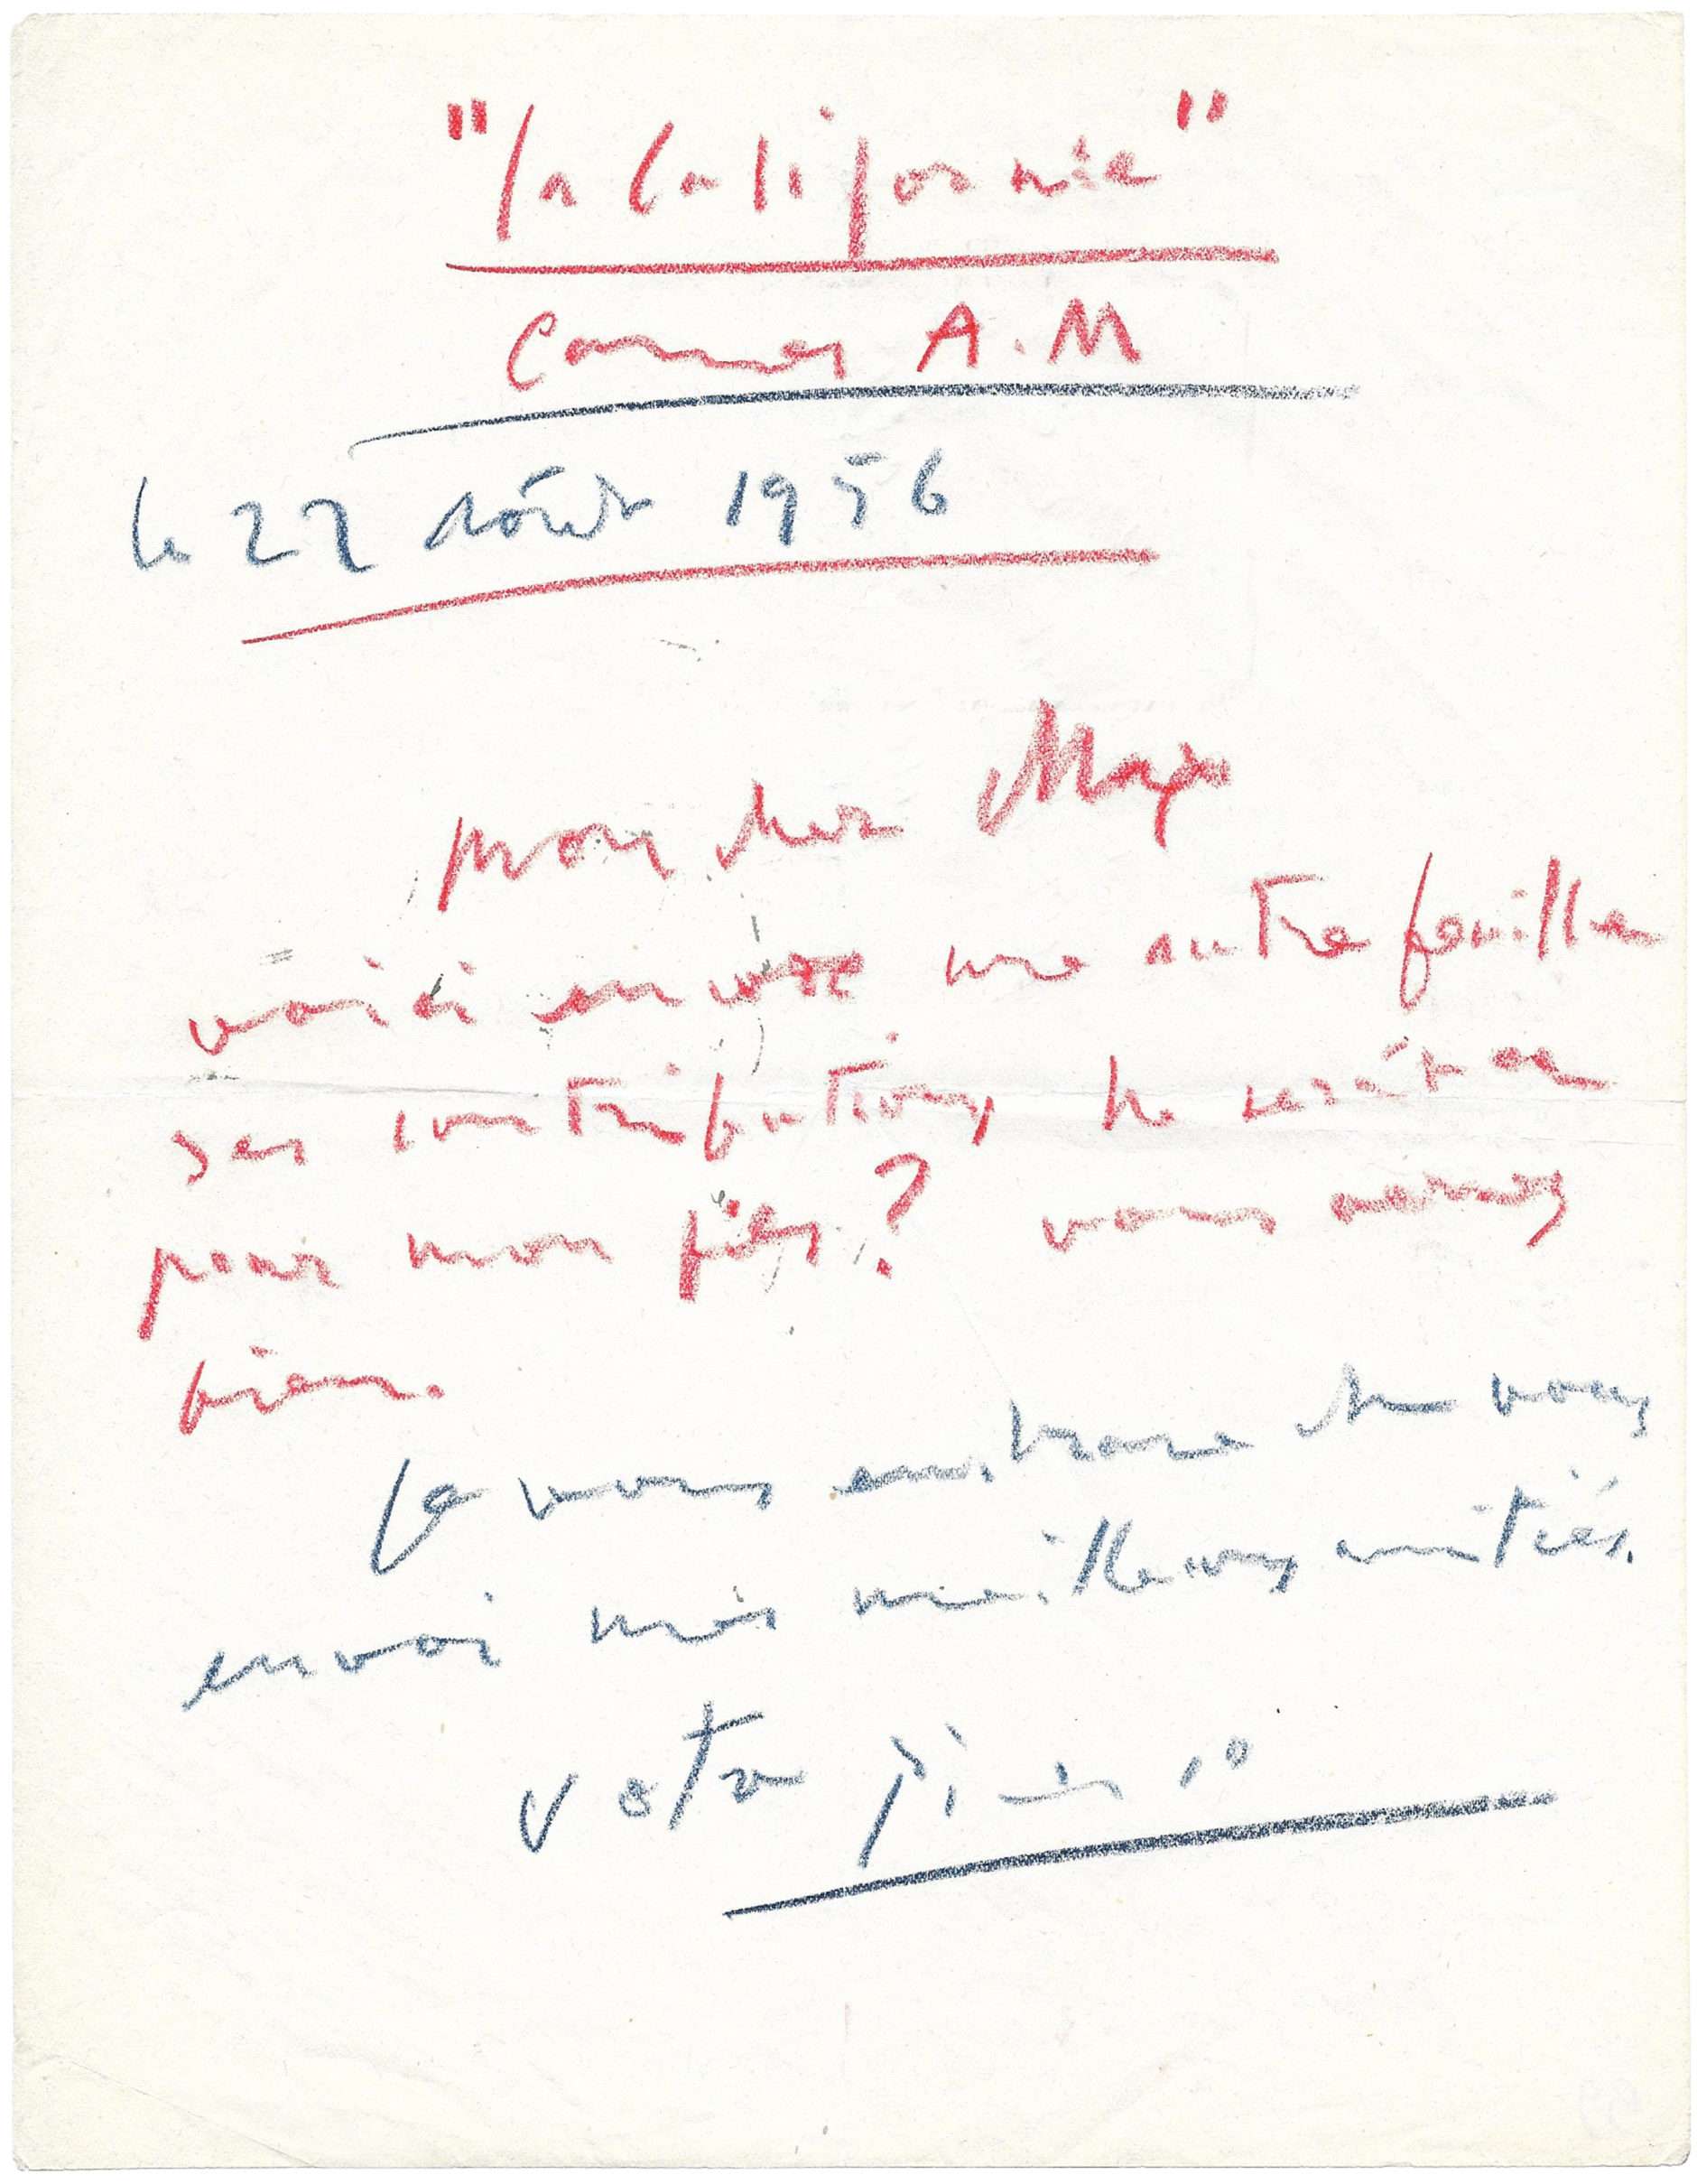 "la Californie"
Cannes A.M
le 22 août 1956
mon cher Max
voici encore une autre feuille
des contributions ne serait ce
pour mon fils? vous verrez
bien.
Je vous embrasse et vous
envoi mes meilleures amitiés.
Votre Picasso